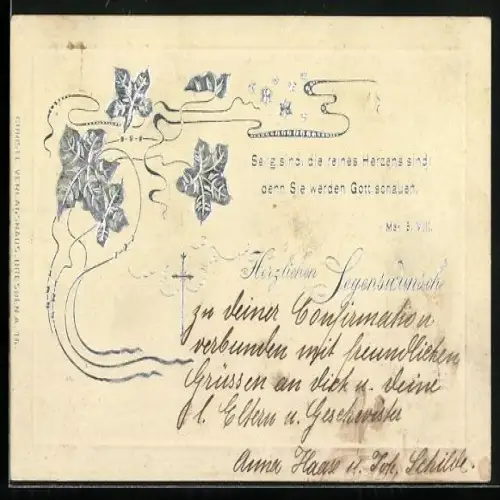 Selig sind, die reines Herzens sind,
denn Sie werden Gott schauen.
Herzlichen Segenswunsch
zu deiner Confirmation
verbunden mit freundlichen
Grüssen an dich u. deine
l. Eltern u. Geschwister
Anna Haase u. Joh. Schilde.